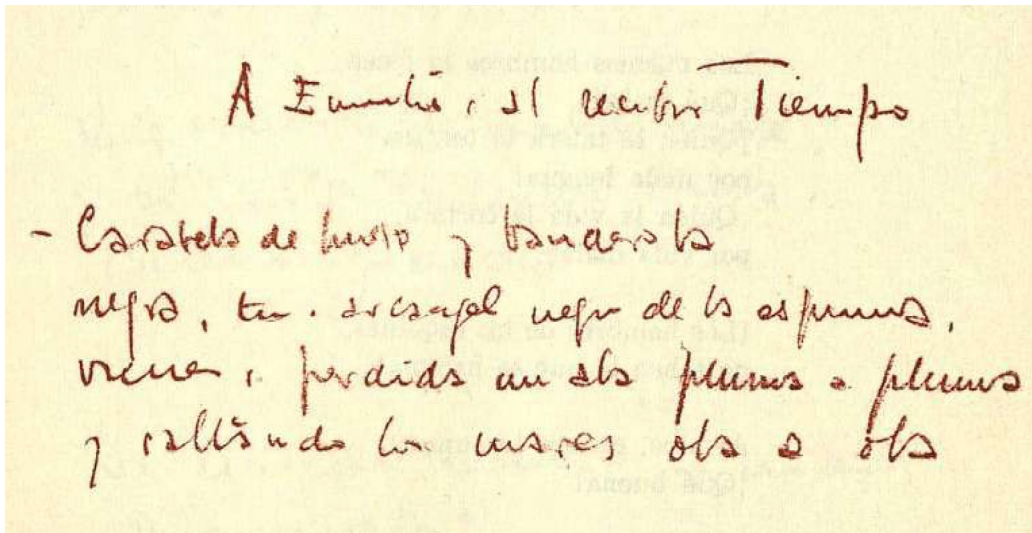 A Emilio, al recibir Tiempo
- Carabela de humo y bandera
negra, tu arcangel negro de la espuma,
vienes, perdida un ala pluma a pluma
y saltando los mares ola a ola